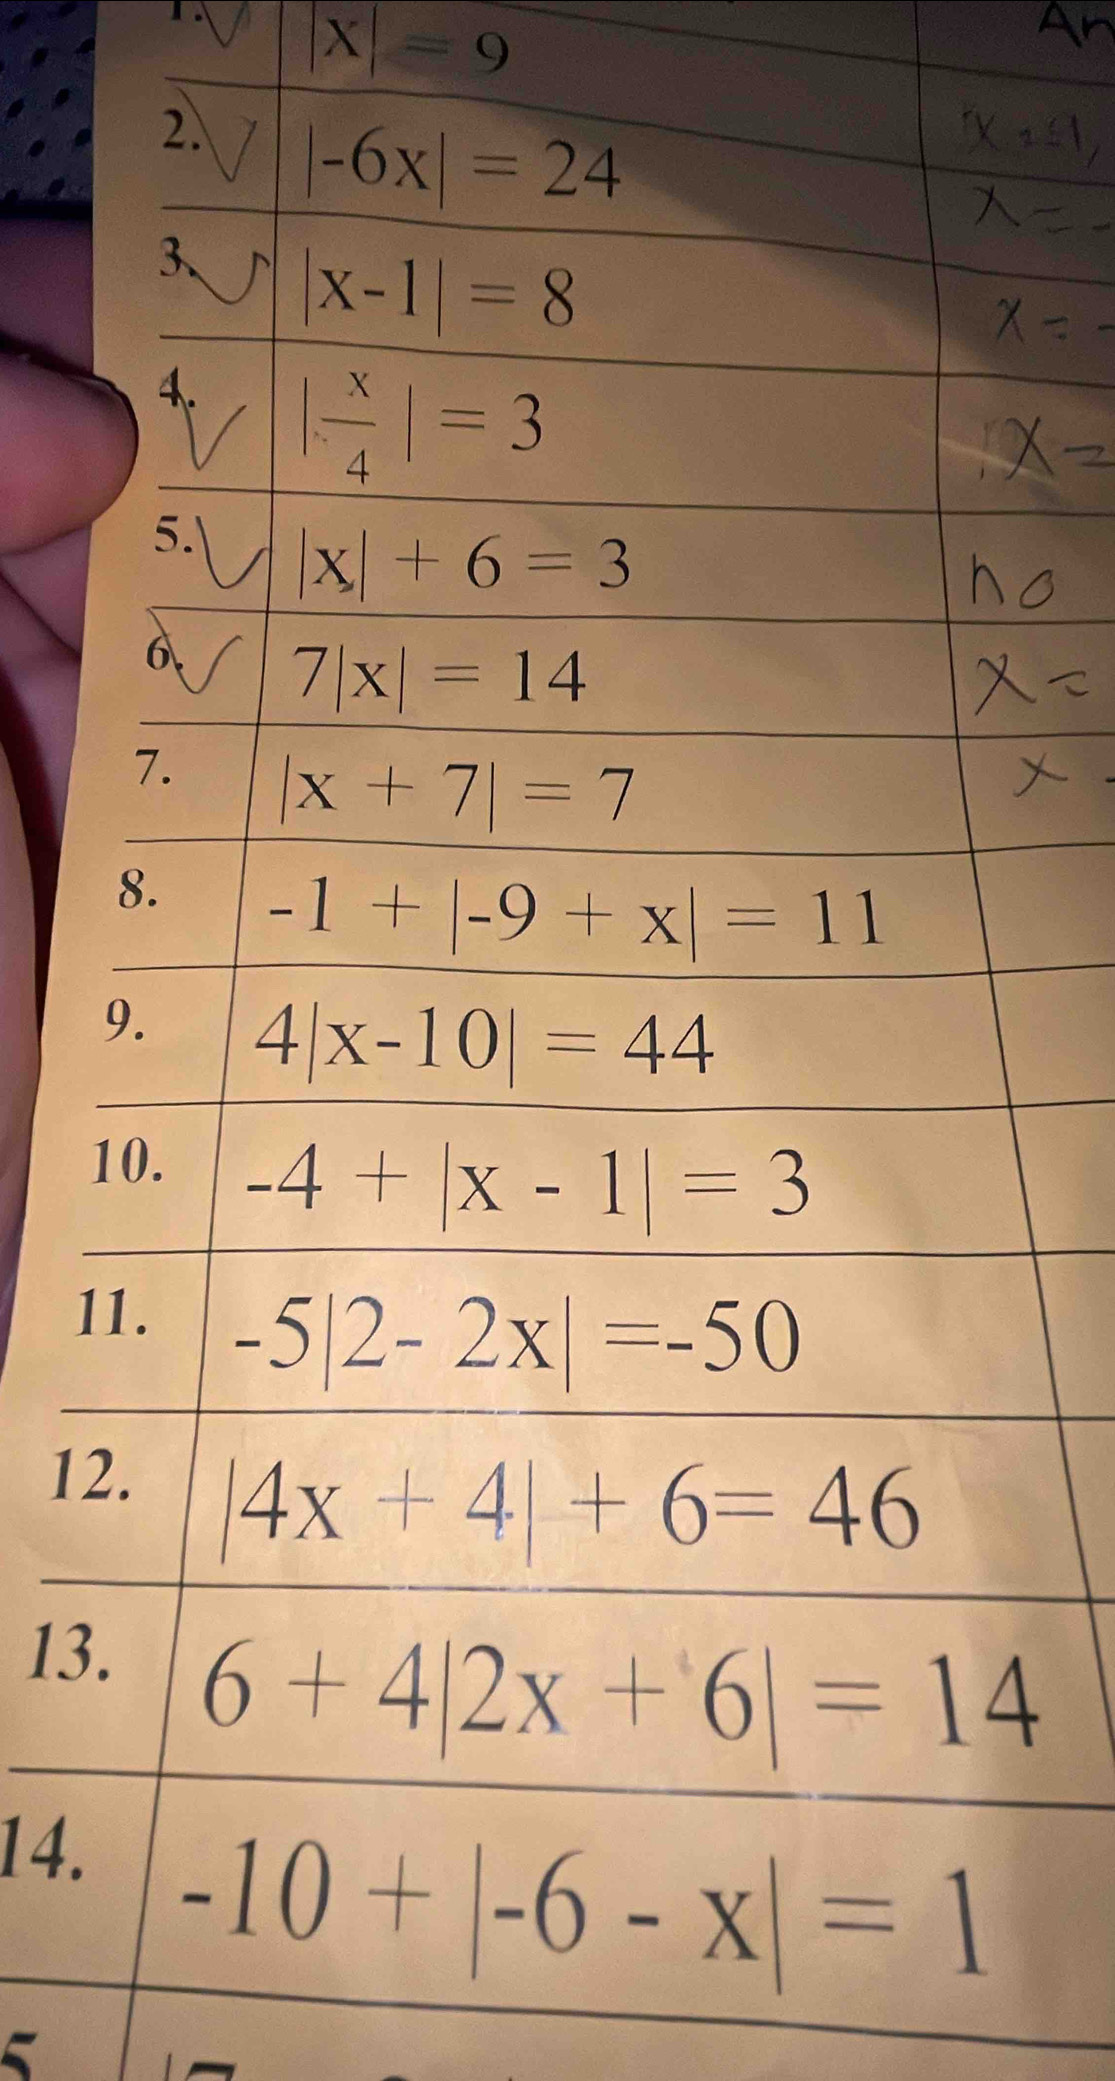 1. |x| = 9
2. |-6x| = 24
x =
3. |x-1| = 8
x = -
4. |x/4| = 3
x =
5. |x| + 6 = 3
no
6. 7|x| = 14
x =
7. |x + 7| = 7
x
8. -1 + |-9 + x| = 11
9. 4|x-10| = 44
10. -4 + |x - 1| = 3
11. -5|2- 2x| =-50
12. |4x + 4| + 6= 46
13. 6 + 4|2x + 6| = 14
14. -10 + |-6 - x| = 1